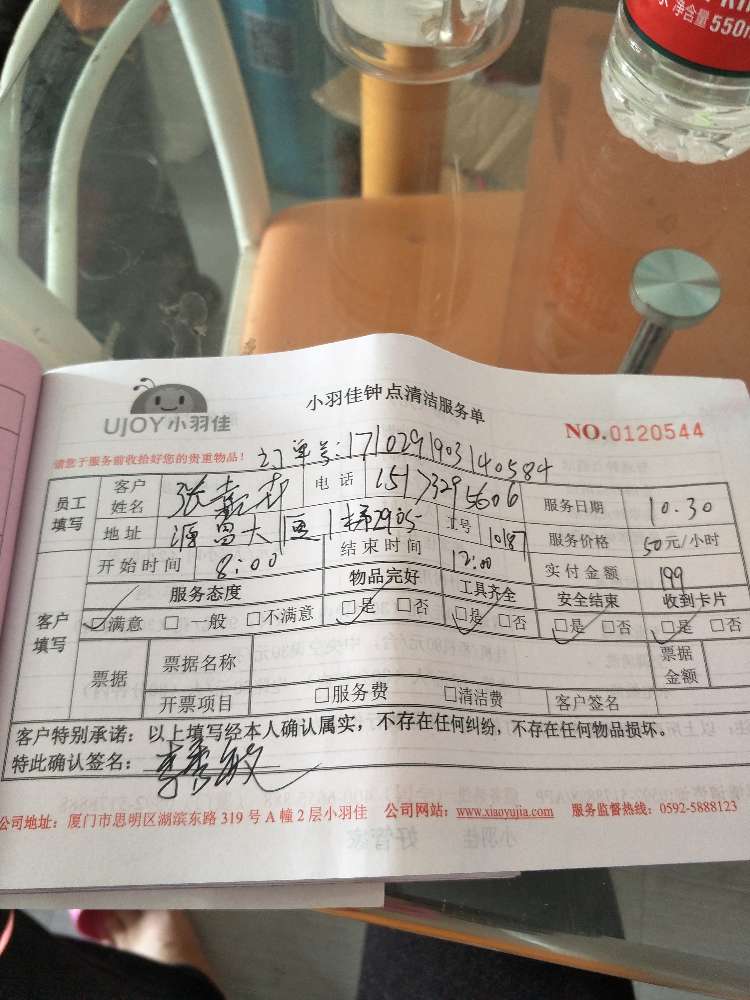 净含量550m
小羽佳钟点清洁服务单
UJOY小羽佳
NO.0120544
请您于服务前收拾好您的贵重物品!
订单号:1710291903140584
员工填写 客户姓名 张 电话 15173295606 服务日期 10.30
地址 源昌大 1梯2905 工号 10187 服务价格 50元/小时
开始时间 8:00 结束时间 12:00 实付金额 199
客户填写 服务态度 物品完好 工具齐全 安全结束 收到卡片
☑满意 □一般 □不满意 ☑是 □否 ☑是 □否 ☑是 □否 ☑是 □否
票据 票据名称 票据金额
开票项目 □服务费 □清洁费 客户签名
客户特别承诺:以上填写经本人确认属实,不存在任何纠纷,不存在任何物品损坏。
特此确认签名:李秀敏
公司地址:厦门市思明区湖滨东路 319 号 A 幢 2 层小羽佳 公司网站:www.xiaoyujia.com 服务监督热线:0592-5888123